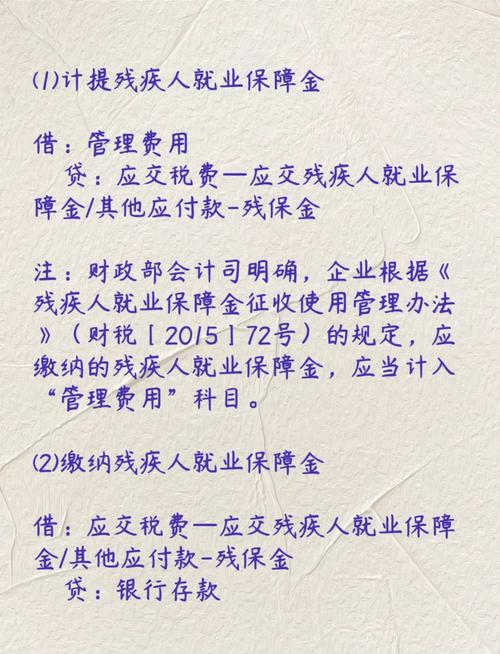 (1)计提残疾人就业保障金
借：管理费用
贷：应交税费—应交残疾人就业保
障金/其他应付款-残保金
注：财政部会计司明确，企业根据《
残疾人就业保障金征收使用管理办法
》（财税［2015］72号）的规定，应
缴纳的残疾人就业保障金，应当计入
“管理费用”科目。
(2)缴纳残疾人就业保障金
借：应交税费—应交残疾人就业保障
金/其他应付款-残保金
贷：银行存款